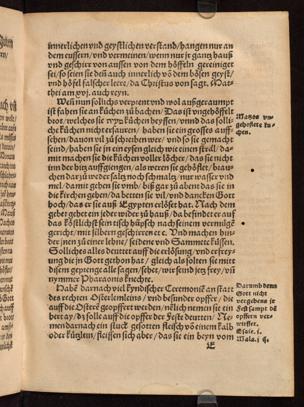 innerlichen vnd geystlichen verstand / hangen nur an
dem eussern / vnd vermeinen / wenn nur je gantz hauß
vnd geschirr von aussen von dem hösseln gereiniget
sei / so seien sie deñ auch innerlich võ dem bösen geyst /
vnd hösel falscher leere / da Christus von sagt. Mat-
thei am xvj. auch reyn.
Weñ nun sollichs verprent vnd wol außgeraumpt
ist fahen sie an kůchen zů bachen. Das ist vngehöffelt
brot / welches sie xyx kůchen heyssen / vnnd das solli-
che kůchen nit ersauren / haben sie ein grosses auff-
sehen / dauon vil zů schreiben wer / vnd so sie gemacht
seind / haben sie in eim eysen gleich wie einen strill / da-
mit machen sie die kůchen voller löcher / das sie nicht
inn der hitz auffgiengen / als weren sie gehöflet / brau-
chen darzů weder saltz noch schmaltz / nur wasser vnd
mel / damit gehen sie vmb / biß gar zů abent das sie in
die kirchen gehen / da betten sie vil / vnd dancken Gott
hoch / das er sie auß Egypten erlöset hat. Nach dem
gebet gehet ein jeder wider zů hauß / da befindet er auff
das köstlichst sein tisch hüpsch nach seinem vermüg
gericht / mit silbern geschirren etc. Vnd machen hin-
der jnen zů einer lehne / seidene vnd Sammete küssen.
Solliches alles deutet auff die erlösung / vnd erfrey-
ung die jn Gott gethon hat / gleich als solten sie mit
disem gepreng alle sagen / sehet / wir seind jetz frey / vñ
nymmer Pharaonis knechte.
Habẽ darnach viel kyndischer Ceremoniẽ an statt
des rechten Osterlemleins / vnd besunder opffer / die
auff die Osteren geopffert werden / nemlich nemen sie ein
bert ay / dz solle auff die opffer der Feste deutten / Ne-
men darnach ein stuck gesotten fleisch võ einem kalb
oder kützlin / fleissen sich aber / das sie ein beyn vom
E
Mazos vn-
gehöflete ků-
chen.
Darumb denn
Gott nicht
vergebens je
Fest sampt dẽ
opffern ver-
würffet.
Esaie. j.
Mala. j.